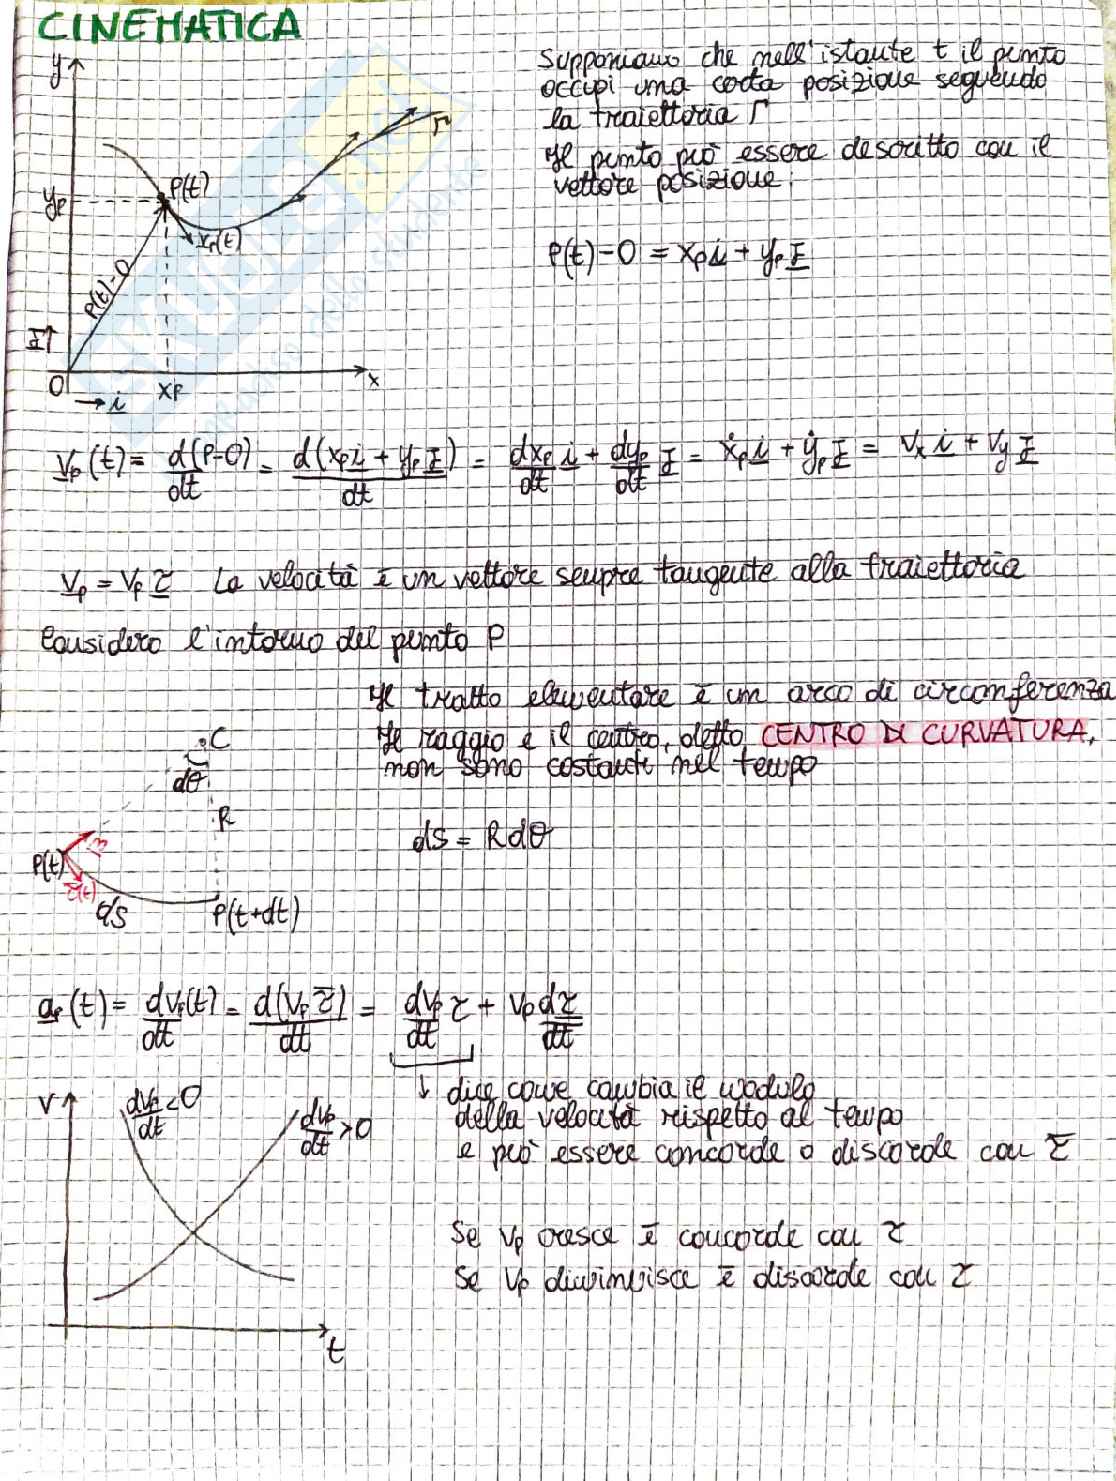 CINEMATICA
Supponiamo che nell'istante t il punto
occupi una certa posizione seguendo
la traiettoria Γ
Il punto può essere descritto con il
vettore posizione:
P(t)-O = xₚi + yₚj
y
Γ
P(t)
yₚ
vₚ(t)
P(t)-O
j
O
xₚ
x
i
vₚ(t) = d(P-O)/dt = d(xₚi + yₚj)/dt = dxₚ/dt i + dyₚ/dt j = ẋₚi + ẏₚj = vₓi + v_y j
vₚ = vₚ τ La velocità è un vettore sempre tangente alla traiettoria
Considero l'intorno del punto P
Il tratto elementare è un arco di circonferenza
Il raggio e il centro, detto CENTRO DI CURVATURA,
non sono costanti nel tempo
C
dθ
R
dS = R dθ
P(t)
n
τ(t)
dS
P(t+dt)
aₚ(t) = dvₚ(t)/dt = d(vₚ τ)/dt = dvₚ/dt τ + vₚ dτ/dt
↓ dice come cambia il modulo
della velocità rispetto al tempo
e può essere concorde o discorde con τ
v
dvₚ/dt < 0
dvₚ/dt > 0
Se vₚ cresce è concorde con τ
Se vₚ diminuisce è discorde con τ
t